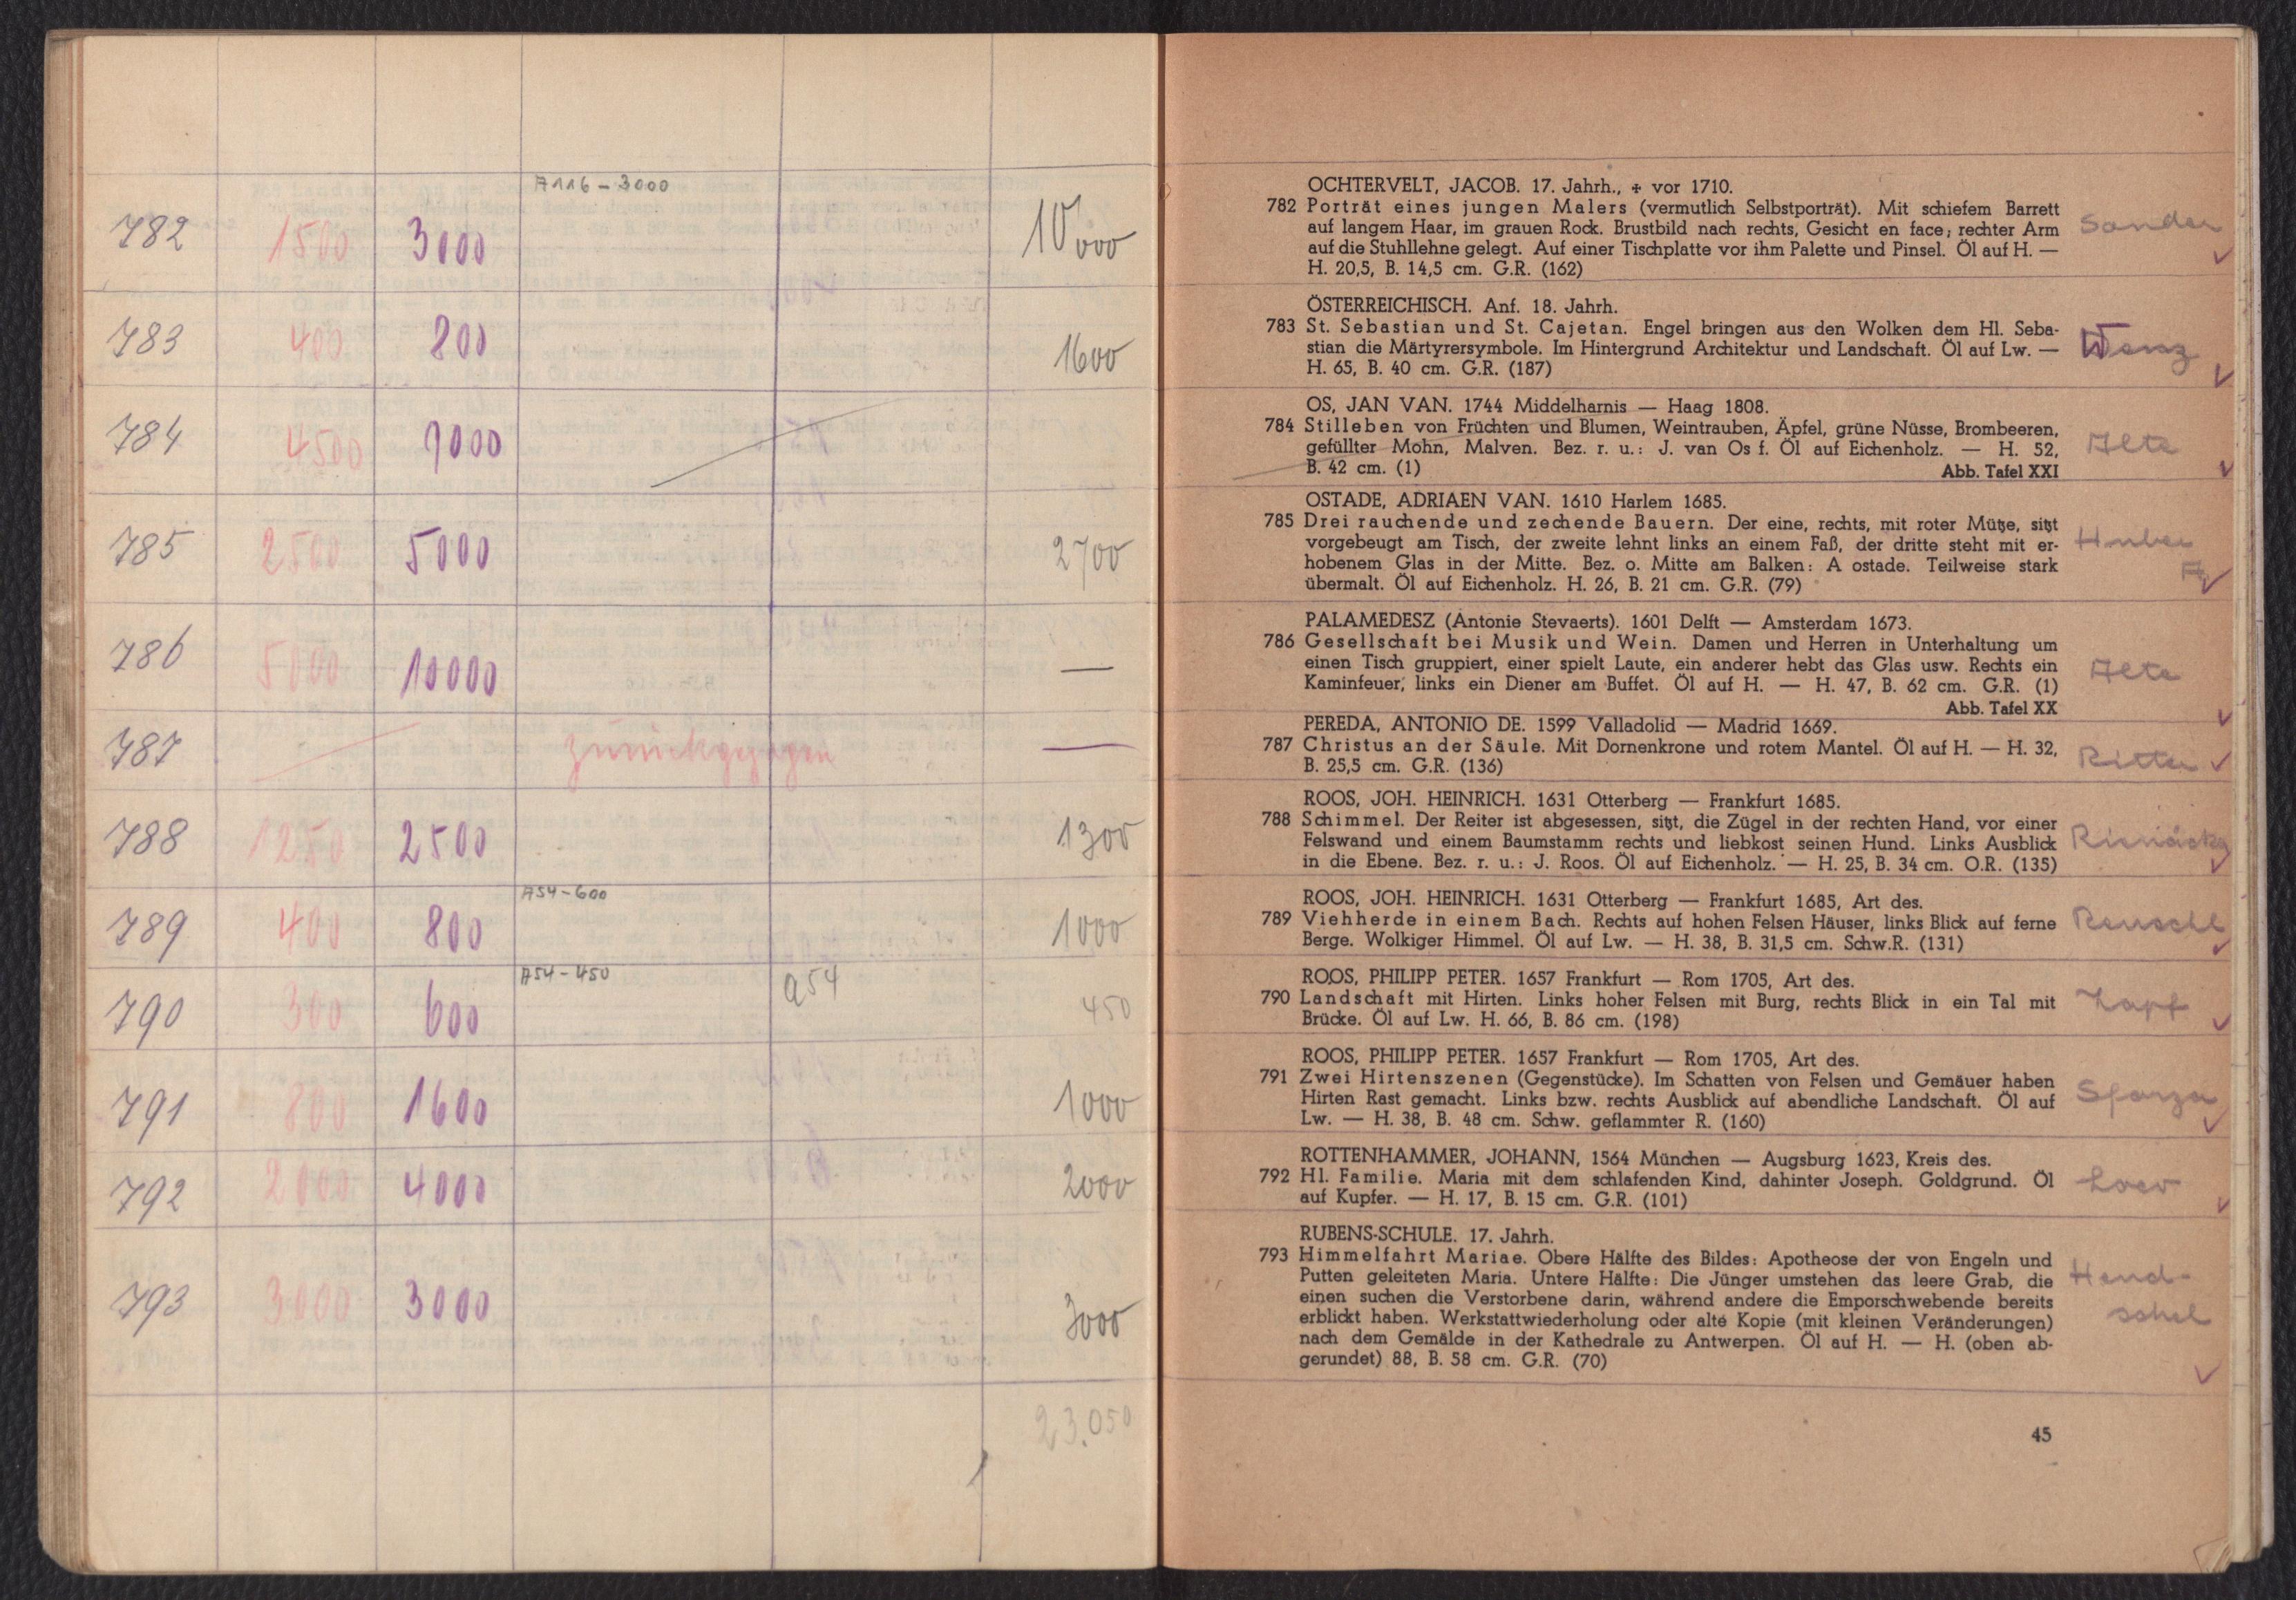 A116 - 3000
782 1500 3000 10000
783 400 800 1600
784 4500 9000
785 2500 5000 2700
786 5000 10000 —
787 zurückgezogen —
788 1250 2500 1300
A54 - 600
789 400 800 1000
A54 - 450
790 300 600 a54 450
791 800 1600 1000
792 2000 4000 2000
793 3000 3000 3000
23.050
OCHTERVELT, JACOB. 17. Jahrh., + vor 1710.
782 Porträt eines jungen Malers (vermutlich Selbstporträt). Mit schiefem Barrett
auf langem Haar, im grauen Rock. Brustbild nach rechts, Gesicht en face; rechter Arm
auf die Stuhllehne gelegt. Auf einer Tischplatte vor ihm Palette und Pinsel. Öl auf H. —
H. 20,5, B. 14,5 cm. G.R. (162)
Sander
ÖSTERREICHISCH. Anf. 18. Jahrh.
783 St. Sebastian und St. Cajetan. Engel bringen aus den Wolken dem Hl. Seba-
stian die Märtyrersymbole. Im Hintergrund Architektur und Landschaft. Öl auf Lw. —
H. 65, B. 40 cm. G.R. (187)
Wenz
OS, JAN VAN. 1744 Middelharnis — Haag 1808.
784 Stilleben von Früchten und Blumen, Weintrauben, Äpfel, grüne Nüsse, Brombeeren,
gefüllter Mohn, Malven. Bez. r. u.: J. van Os f. Öl auf Eichenholz. — H. 52,
B. 42 cm. (1) Abb. Tafel XXI
OSTADE, ADRIAEN VAN. 1610 Harlem 1685.
785 Drei rauchende und zechende Bauern. Der eine, rechts, mit roter Mütze, sitzt
vorgebeugt am Tisch, der zweite lehnt links an einem Faß, der dritte steht mit er-
hobenem Glas in der Mitte. Bez. o. Mitte am Balken: A ostade. Teilweise stark
übermalt. Öl auf Eichenholz. H. 26, B. 21 cm. G.R. (79)
Huber
PALAMEDESZ (Antonie Stevaerts). 1601 Delft — Amsterdam 1673.
786 Gesellschaft bei Musik und Wein. Damen und Herren in Unterhaltung um
einen Tisch gruppiert, einer spielt Laute, ein anderer hebt das Glas usw. Rechts ein
Kaminfeuer, links ein Diener am Buffet. Öl auf H. — H. 47, B. 62 cm. G.R. (1)
Abb. Tafel XX
PEREDA, ANTONIO DE. 1599 Valladolid — Madrid 1669.
787 Christus an der Säule. Mit Dornenkrone und rotem Mantel. Öl auf H. — H. 32,
B. 25,5 cm. G.R. (136)
Ritter
ROOS, JOH. HEINRICH. 1631 Otterberg — Frankfurt 1685.
788 Schimmel. Der Reiter ist abgesessen, sitzt, die Zügel in der rechten Hand, vor einer
Felswand und einem Baumstamm rechts und liebkost seinen Hund. Links Ausblick
in die Ebene. Bez. r. u.: J. Roos. Öl auf Eichenholz. — H. 25, B. 34 cm. O.R. (135)
ROOS, JOH. HEINRICH. 1631 Otterberg — Frankfurt 1685, Art des.
789 Viehherde in einem Bach. Rechts auf hohen Felsen Häuser, links Blick auf ferne
Berge. Wolkiger Himmel. Öl auf Lw. — H. 38, B. 31,5 cm. Schw.R. (131)
ROOS, PHILIPP PETER. 1657 Frankfurt — Rom 1705, Art des.
790 Landschaft mit Hirten. Links hoher Felsen mit Burg, rechts Blick in ein Tal mit
Brücke. Öl auf Lw. H. 66, B. 86 cm. (198)
Zapf
ROOS, PHILIPP PETER. 1657 Frankfurt — Rom 1705, Art des.
791 Zwei Hirtenszenen (Gegenstücke). Im Schatten von Felsen und Gemäuer haben
Hirten Rast gemacht. Links bzw. rechts Ausblick auf abendliche Landschaft. Öl auf
Lw. — H. 38, B. 48 cm. Schw. geflammter R. (160)
ROTTENHAMMER, JOHANN, 1564 München — Augsburg 1623, Kreis des.
792 Hl. Familie. Maria mit dem schlafenden Kind, dahinter Joseph. Goldgrund. Öl
auf Kupfer. — H. 17, B. 15 cm. G.R. (101)
RUBENS-SCHULE. 17. Jahrh.
793 Himmelfahrt Mariae. Obere Hälfte des Bildes: Apotheose der von Engeln und
Putten geleiteten Maria. Untere Hälfte: Die Jünger umstehen das leere Grab, die
einen suchen die Verstorbene darin, während andere die Emporschwebende bereits
erblickt haben. Werkstattwiederholung oder alte Kopie (mit kleinen Veränderungen)
nach dem Gemälde in der Kathedrale zu Antwerpen. Öl auf H. — H. (oben ab-
gerundet) 88, B. 58 cm. G.R. (70)
Hend-
schel
45